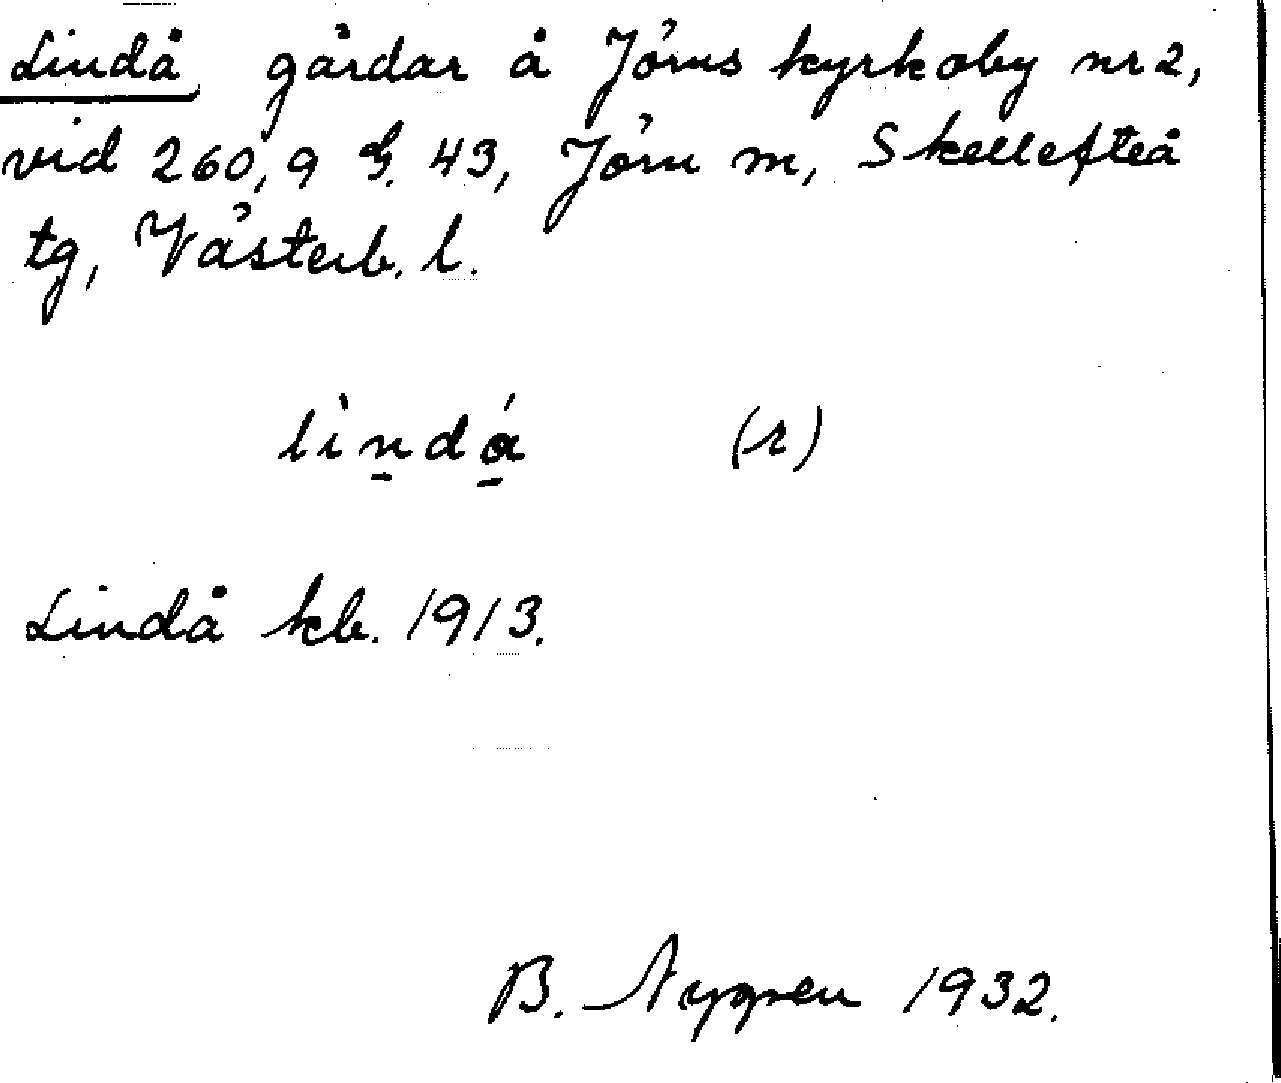 Lindå, gårdar å Jörns kyrkoby nr 2,
vid 260,9 G. 43, Jörn m, Skellefteå
tg, Västerb. l.
lìndá (r)
Lindå kb. 1913.
B. Nygren 1932.